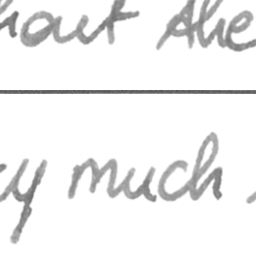 hout the
y much